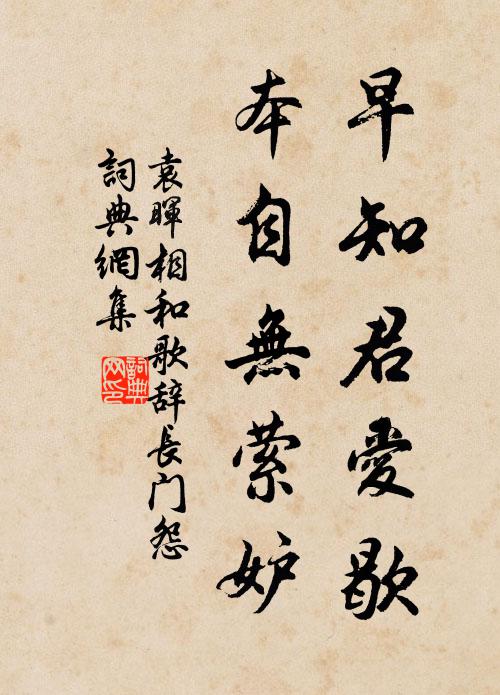 早知君愛歇
本自無縈妒
袁暉相和歌辞長门怨
詞典網集
詞典網印